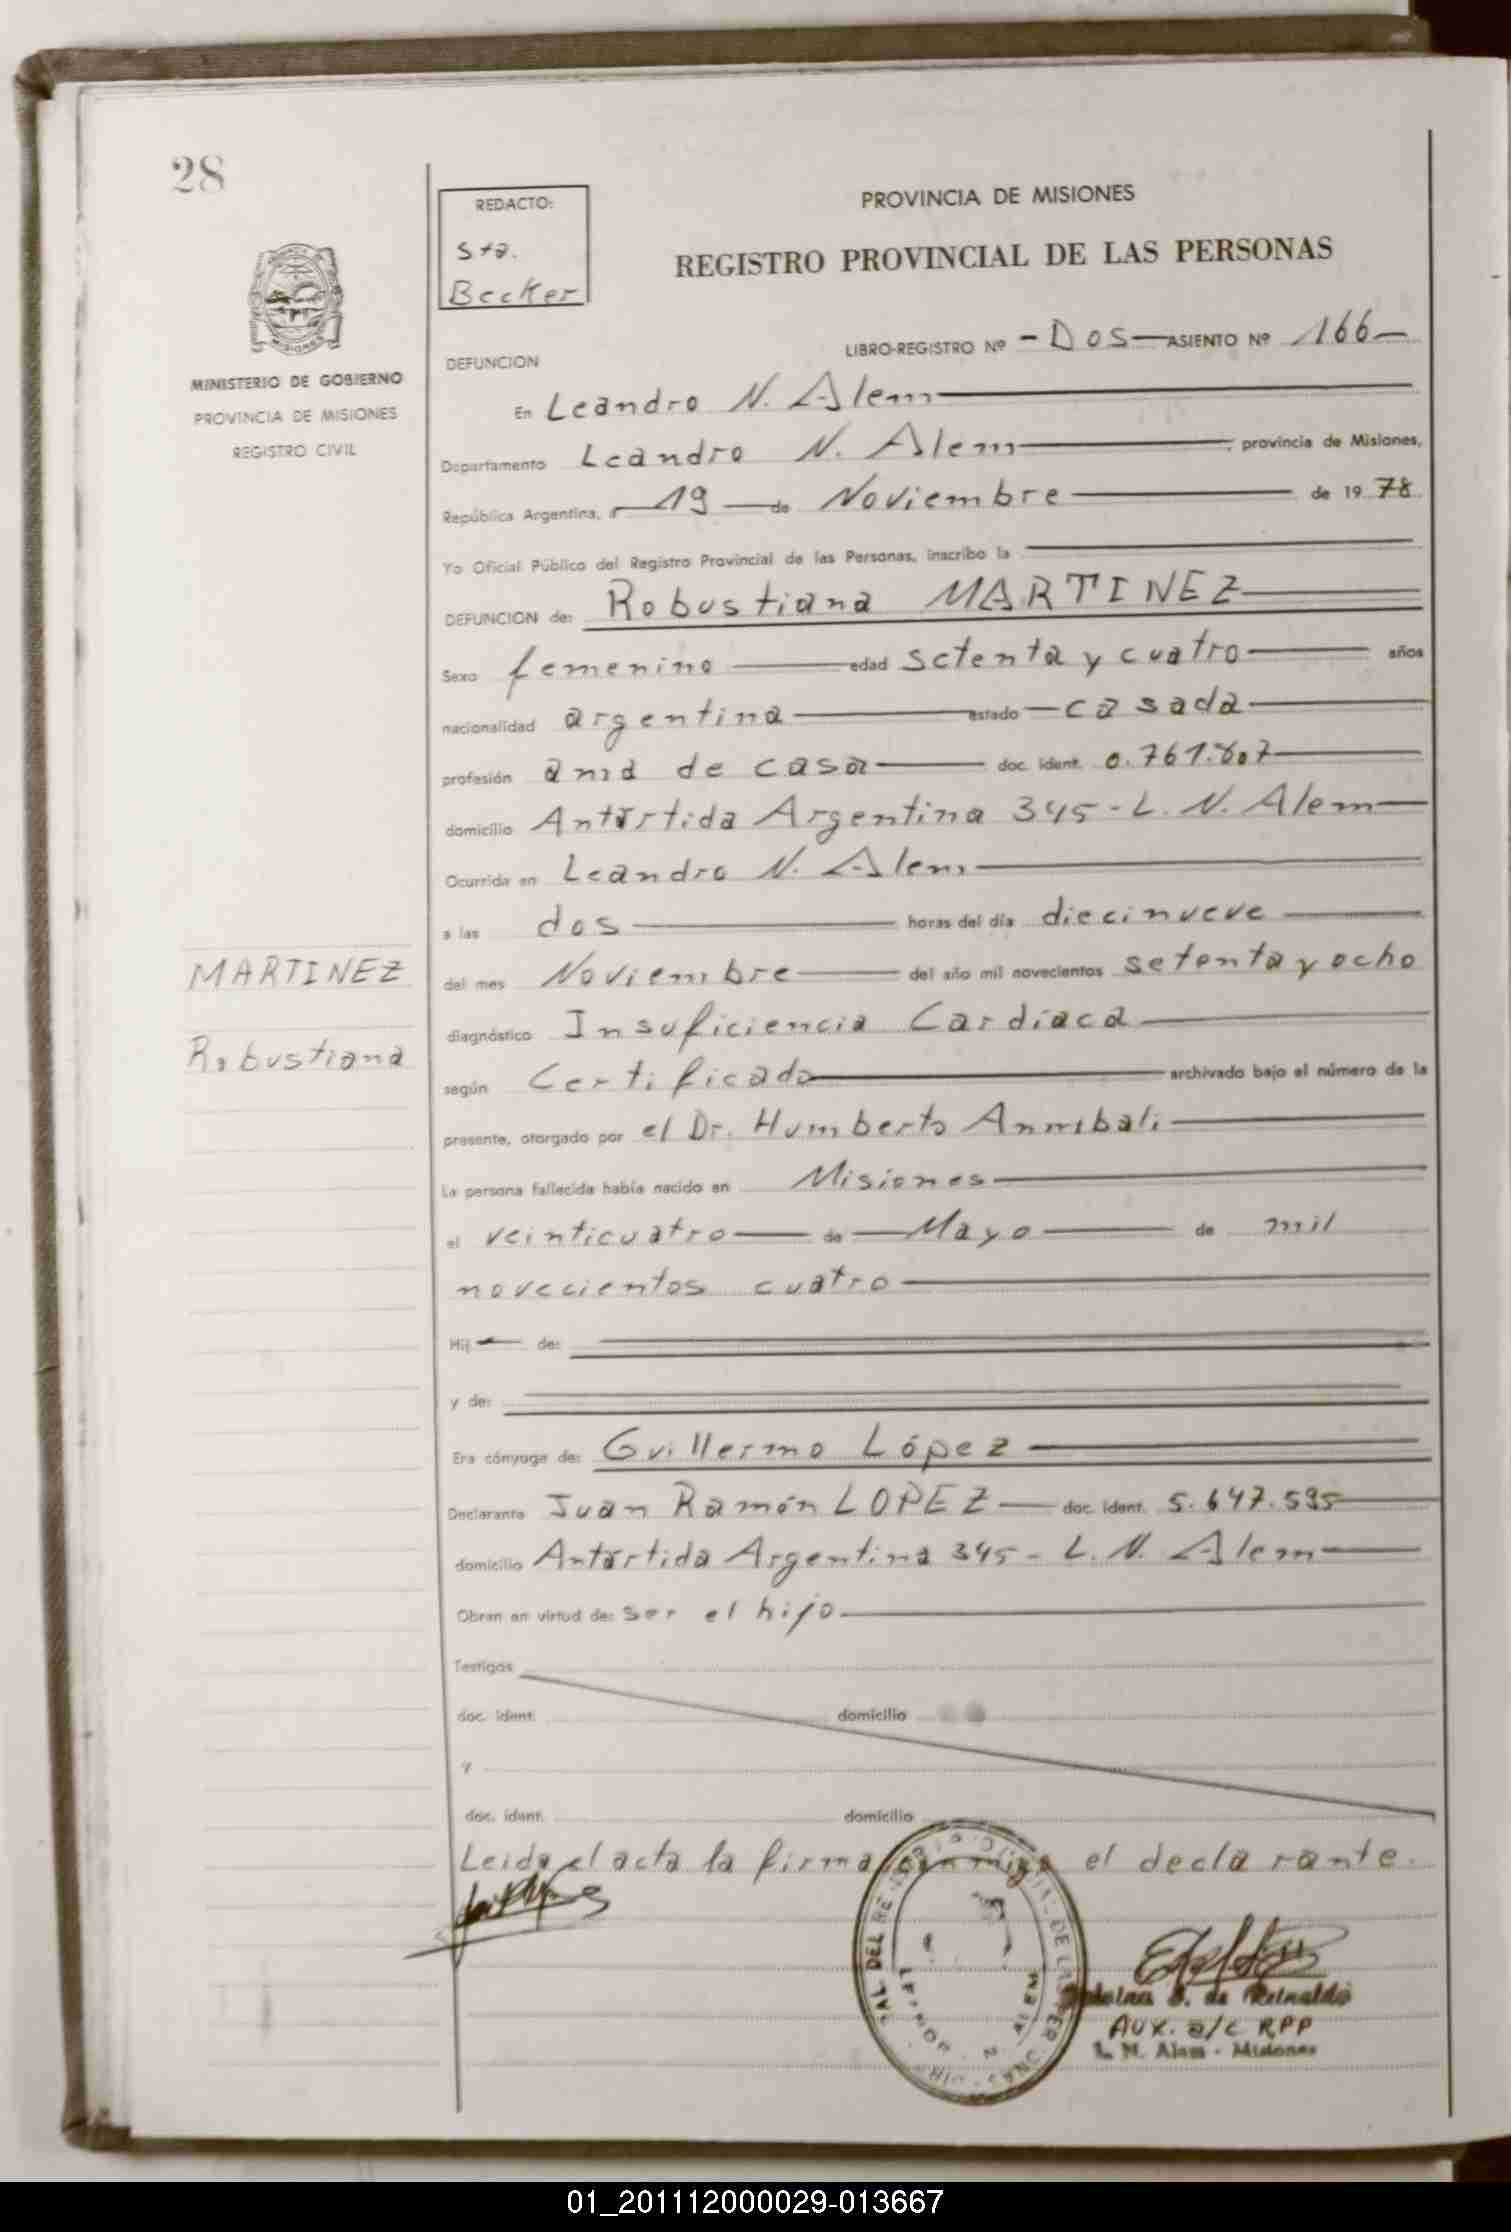 28
REDACTO:
Sta.
Becker
PROVINCIA DE MISIONES
REGISTRO PROVINCIAL DE LAS PERSONAS
MISIONES
MINISTERIO DE GOBIERNO
PROVINCIA DE MISIONES
REGISTRO CIVIL
DEFUNCION
LIBRO-REGISTRO Nº - Dos - ASIENTO Nº 166 -
En Leandro N. Alem
Departamento Leandro N. Alem provincia de Misiones,
República Argentina, a 19 de Noviembre de 1978
Yo Oficial Público del Registro Provincial de las Personas, inscribo la
DEFUNCION de: Robustiana MARTINEZ
Sexo femenino edad setenta y cuatro años
nacionalidad argentina estado casada
profesión ama de casa doc. ident. 0.761.807
domicilio Antártida Argentina 345 - L. N. Alem
Ocurrida en Leandro N. Alem
a las dos horas del día diecinueve
del mes Noviembre del año mil novecientos setenta y ocho
MARTINEZ
Robustiana
diagnóstico Insuficiencia Cardíaca
según Certificado archivado bajo el número de la
presente, otorgado por el Dr. Humberto Annibali
La persona fallecida había nacido en Misiones
el veinticuatro de Mayo de mil
novecientos cuatro
Hij de:
y de:
Era cónyuge de: Guillermo López
Declarante Juan Ramón LOPEZ doc. ident. 5.647.595
domicilio Antártida Argentina 345 - L. N. Alem
Obran en virtud de: ser el hijo
Testigos
doc. ident. domicilio
y
doc. ident. domicilio
Leida el acta la firma conmigo el declarante.
de Reinaldo
AUX. a/c RPP
L. N. Alem - Misiones
01_201112000029-013667